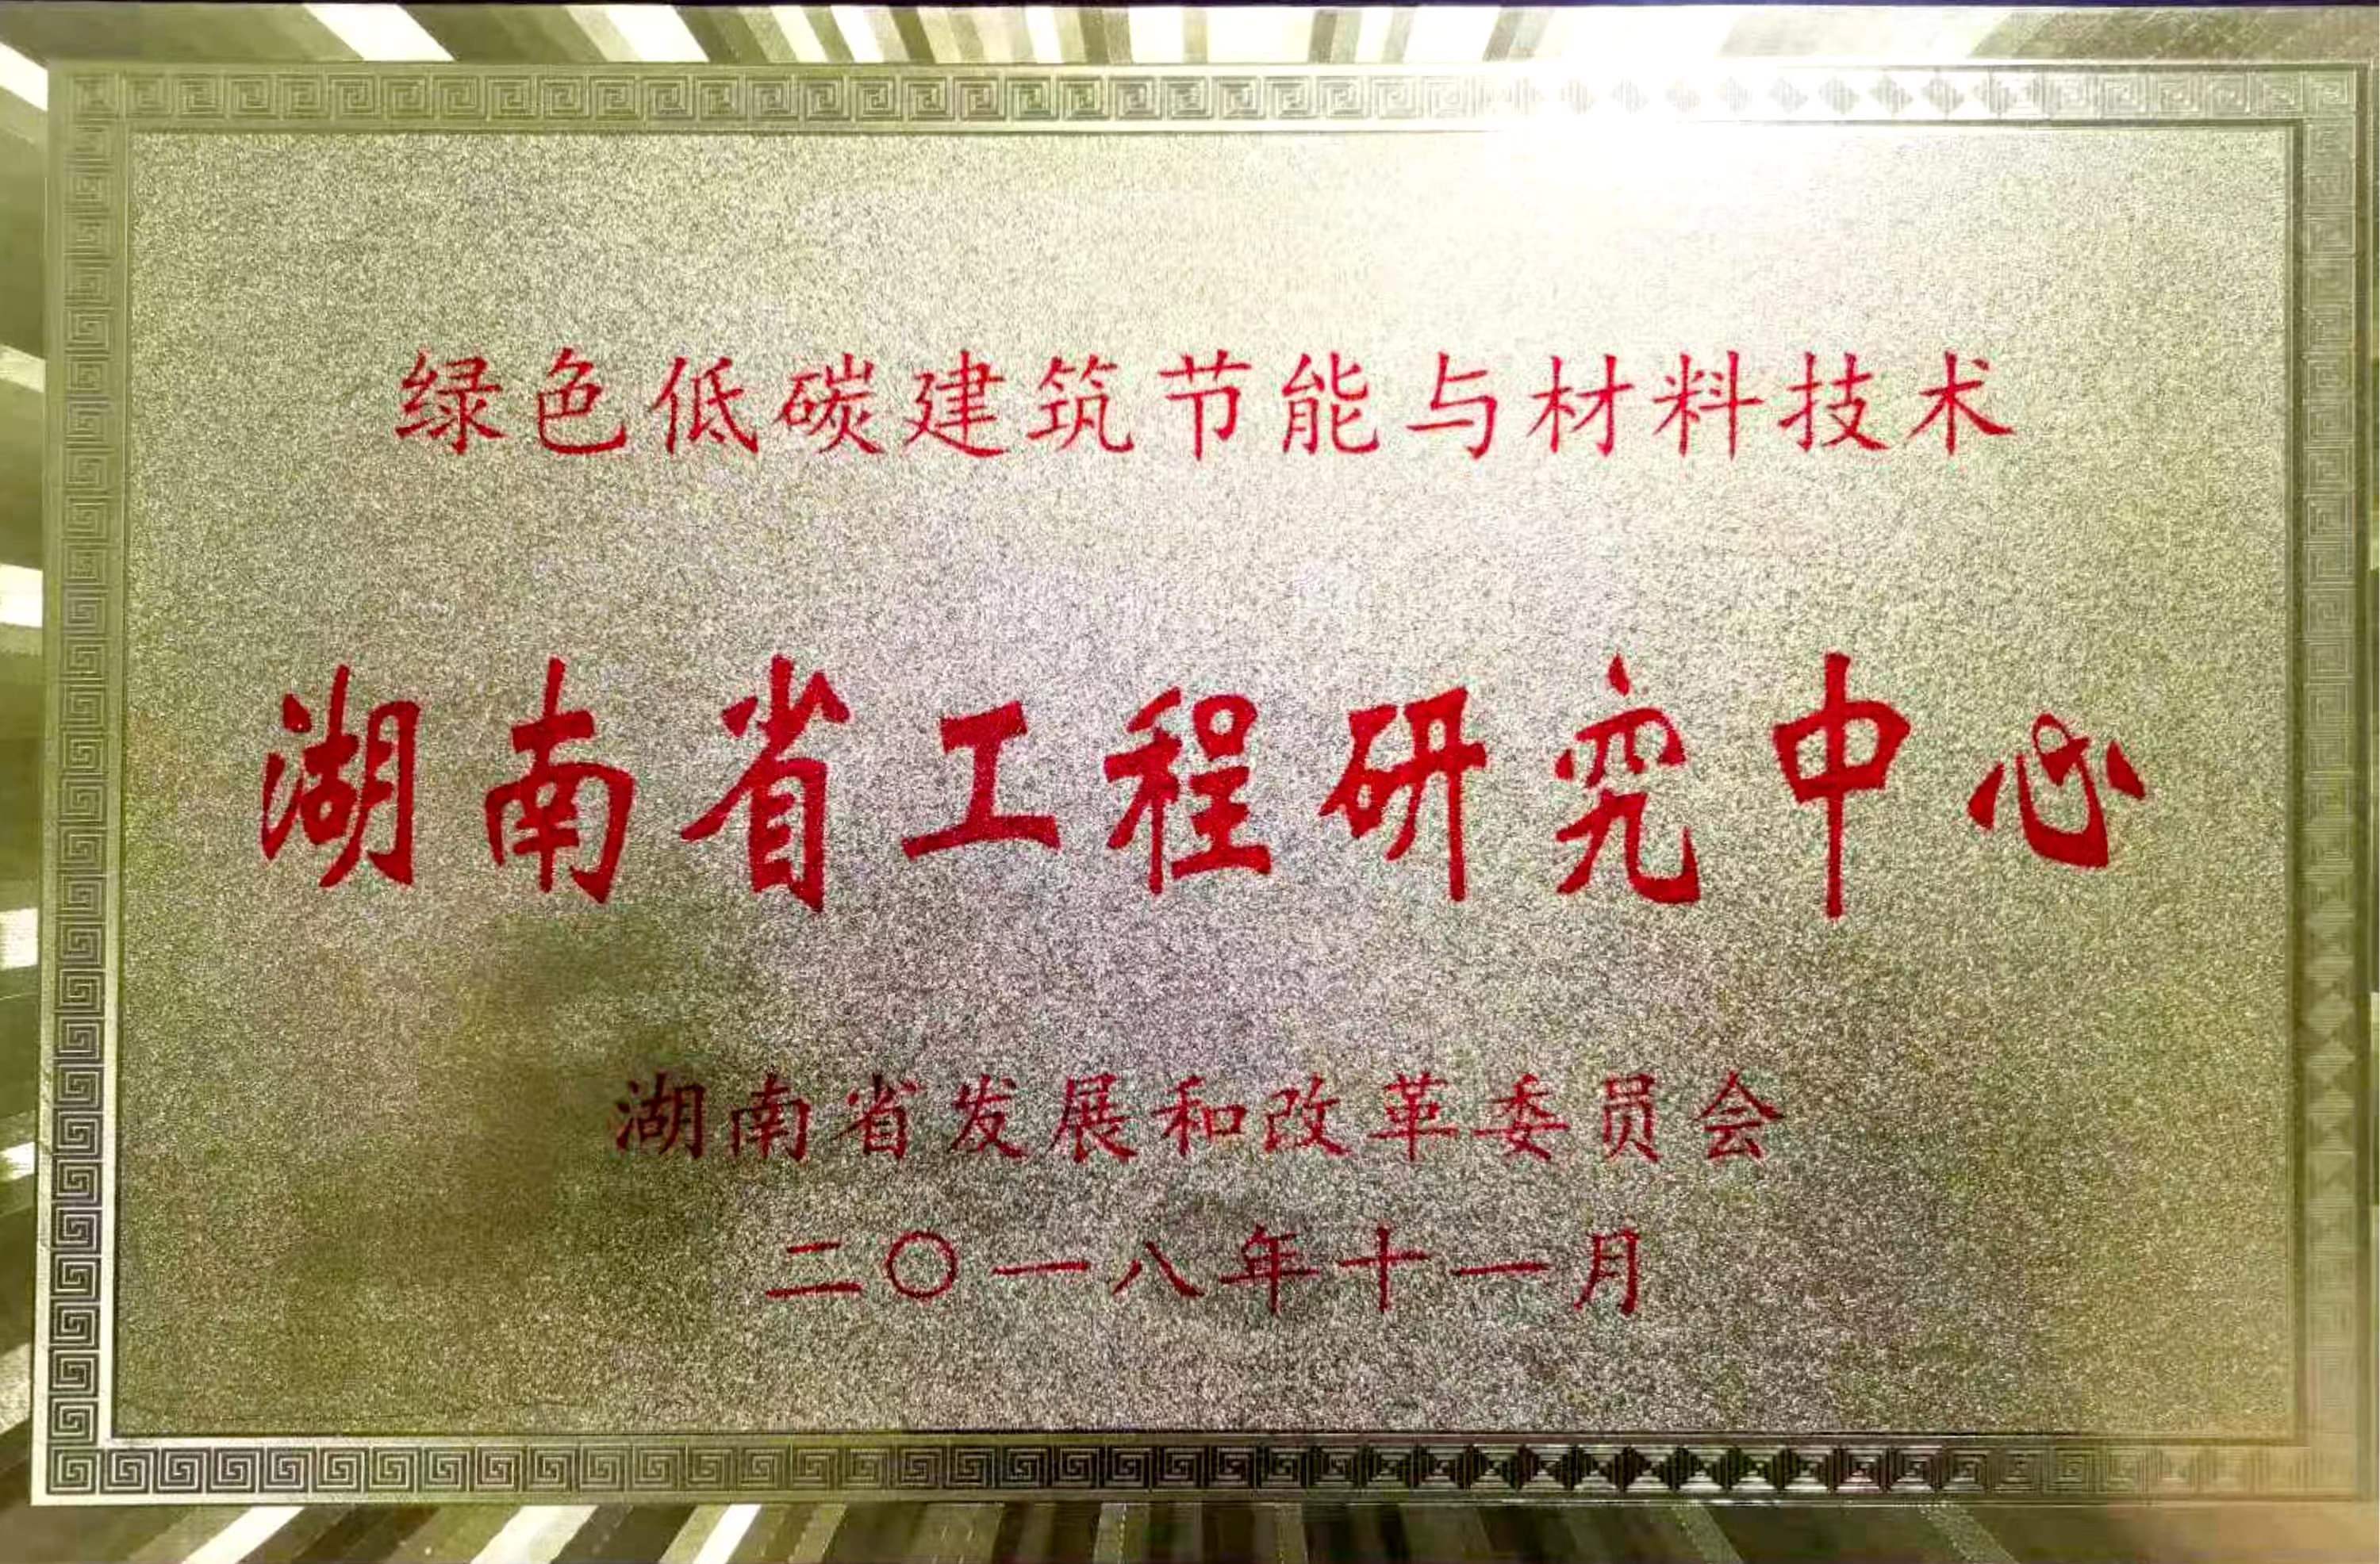 绿色低碳建筑节能与材料技术
湖南省工程研究中心
湖南省发展和改革委员会
二〇一八年十一月